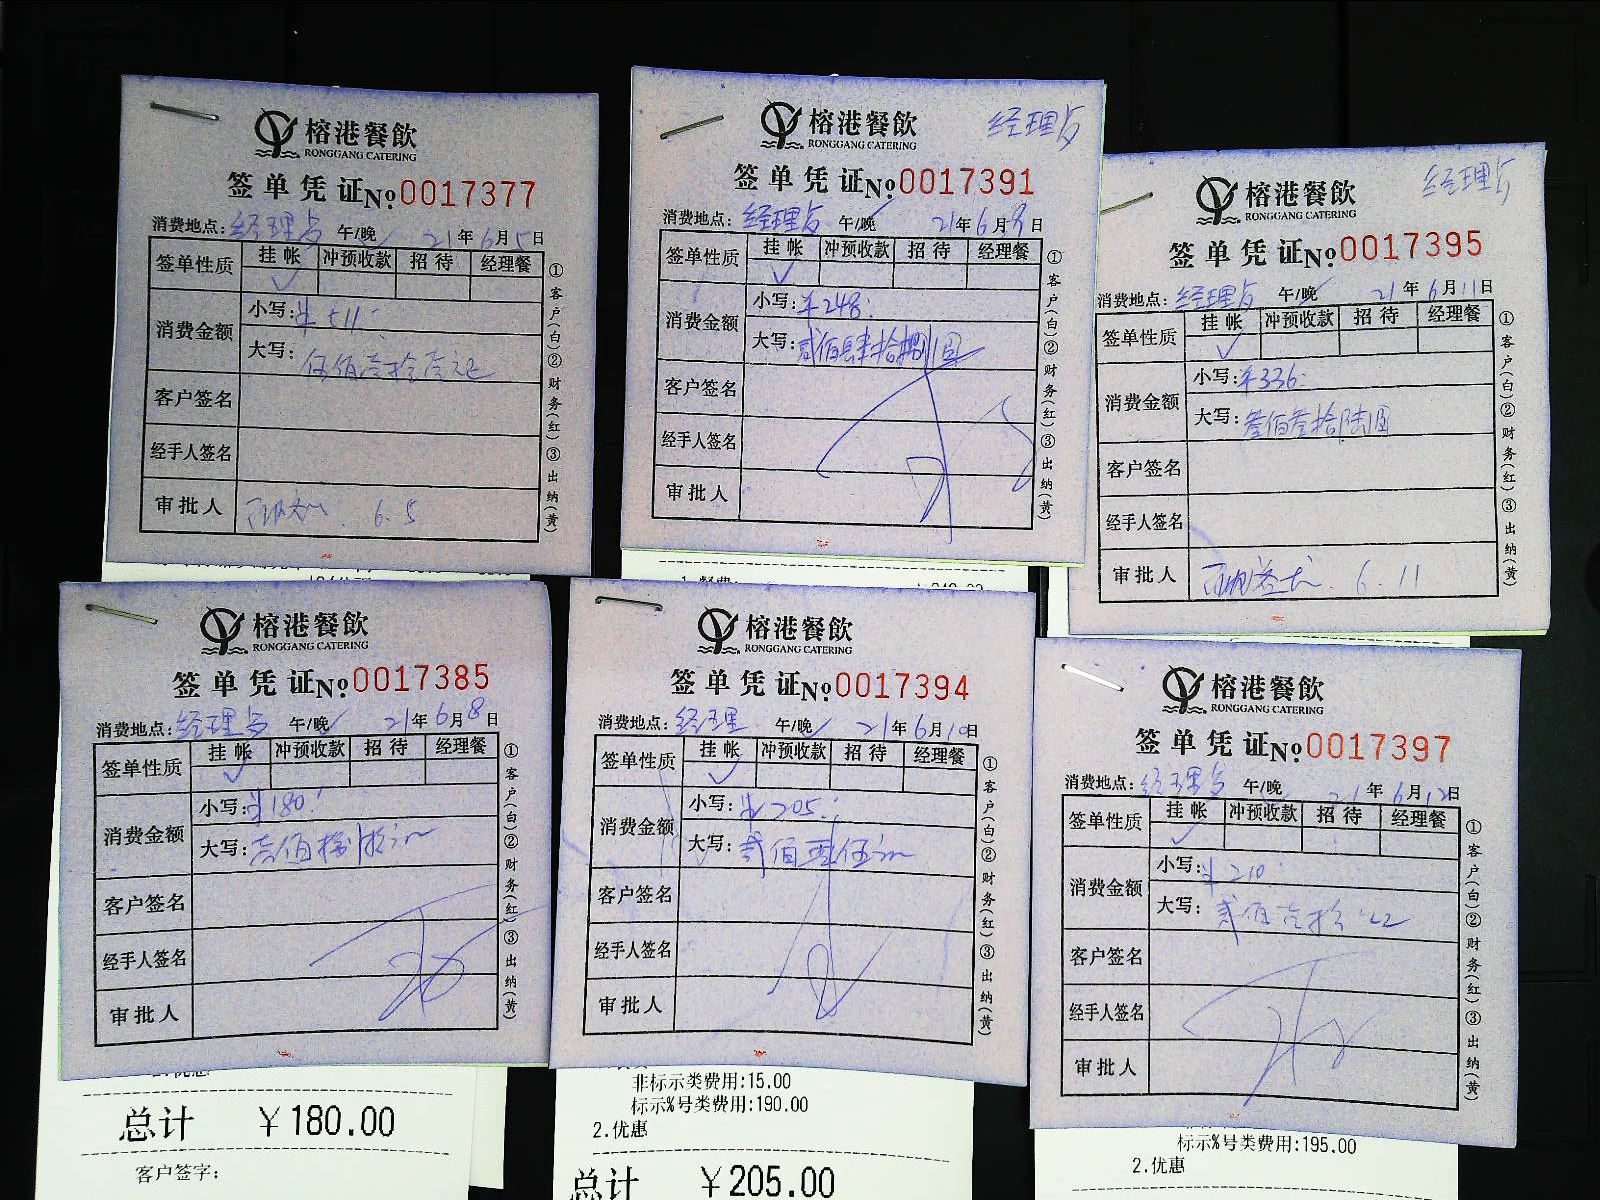 榕港餐飲
RONGGANG CATERING
签单凭证No.0017377
消费地点: 经理房 午/晚✓ 21年6月5日
签单性质 挂帐 冲预收款 招待 经理餐
✓
消费金额 小写:¥511.
大写:伍佰壹拾壹元正
客户签名
经手人签名
审批人 6.5
①客户(白)②财务(红)③出纳(黄)
榕港餐飲
RONGGANG CATERING
经理房
签单凭证No.0017391
消费地点: 经理房 午/晚✓ 21年6月9日
签单性质 挂帐 冲预收款 招待 经理餐
✓
消费金额 小写:¥248.
大写:贰佰肆拾捌圆
客户签名
经手人签名
审批人
①客户(白)②财务(红)③出纳(黄)
1.餐费:
榕港餐飲
RONGGANG CATERING
经理房
签单凭证No.0017395
消费地点: 经理房 午/晚✓ 21年6月11日
签单性质 挂帐 冲预收款 招待 经理餐
✓
消费金额 小写:¥336.
大写:叁佰叁拾陆圆
客户签名
经手人签名
审批人 6.11
①客户(白)②财务(红)③出纳(黄)
榕港餐飲
RONGGANG CATERING
签单凭证No.0017385
消费地点: 经理房 午/晚✓ 21年6月8日
签单性质 挂帐 冲预收款 招待 经理餐
✓
消费金额 小写:¥180.
大写:壹佰捌拾元
客户签名
经手人签名
审批人
①客户(白)②财务(红)③出纳(黄)
总计 ¥180.00
客户签字:
榕港餐飲
RONGGANG CATERING
签单凭证No.0017394
消费地点: 经理 午/晚✓ 21年6月10日
签单性质 挂帐 冲预收款 招待 经理餐
✓
消费金额 小写:¥205.
大写:贰佰零伍元
客户签名
经手人签名
审批人
①客户(白)②财务(红)③出纳(黄)
非标示类费用:15.00
标示%号类费用:190.00
2.优惠
总计 ¥205.00
榕港餐飲
RONGGANG CATERING
签单凭证No.0017397
消费地点: 经理房 午/晚 21年6月12日
签单性质 挂帐 冲预收款 招待 经理餐
✓
消费金额 小写:¥210.
大写:贰佰壹拾元
客户签名
经手人签名
审批人
①客户(白)②财务(红)③出纳(黄)
标示%号类费用:195.00
2.优惠